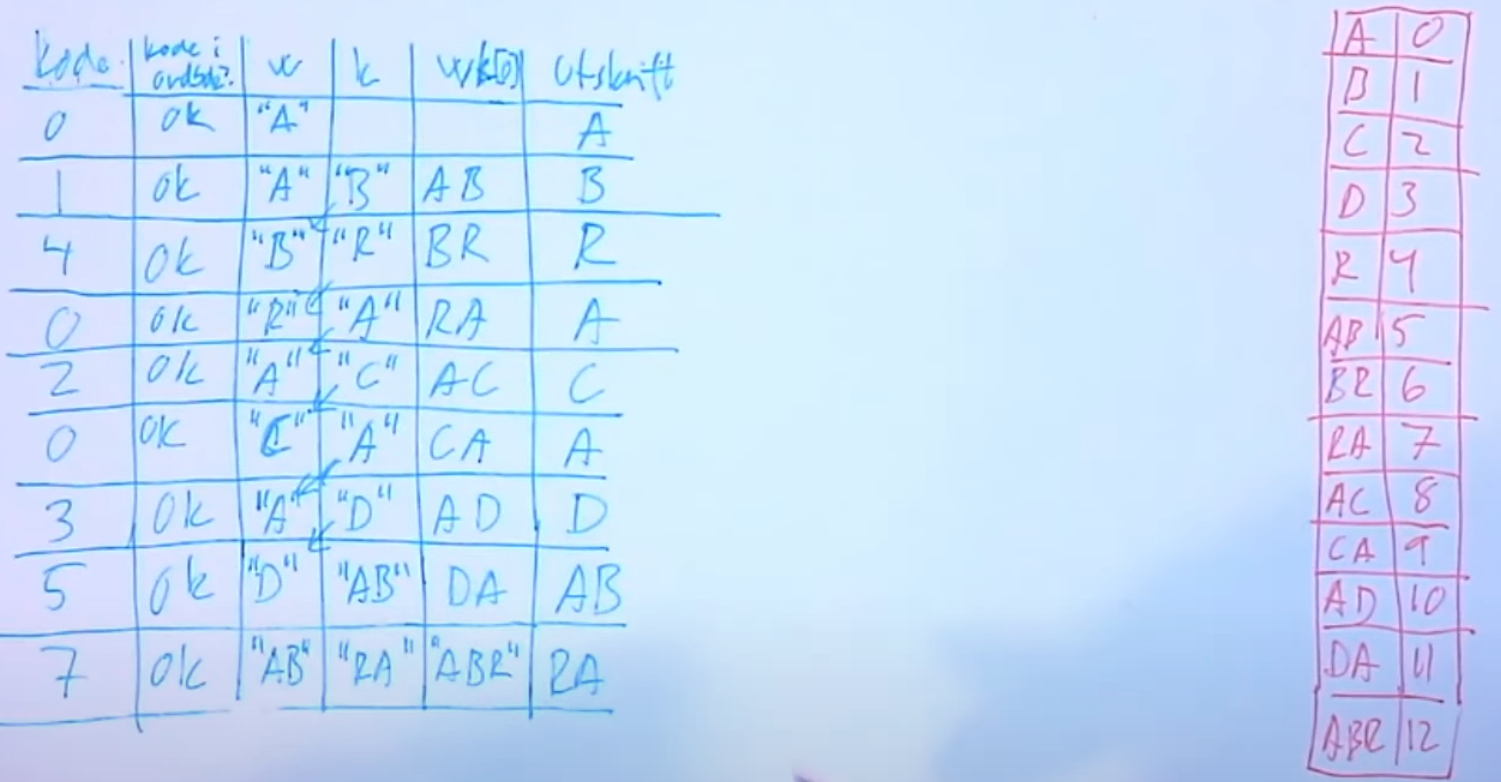 Kode kode i ordbok? w k w k[0] Utskrift
0 ok "A" A
1 ok "A" "B" AB B
4 ok "B" "R" BR R
0 ok "R" "A" RA A
2 ok "A" "C" AC C
0 ok "C" "A" CA A
3 ok "A" "D" AD D
5 ok "D" "AB" DA AB
7 ok "AB" "RA" "ABR" RA
A 0
B 1
C 2
D 3
R 4
AB 5
BR 6
RA 7
AC 8
CA 9
AD 10
DA 11
ABR 12